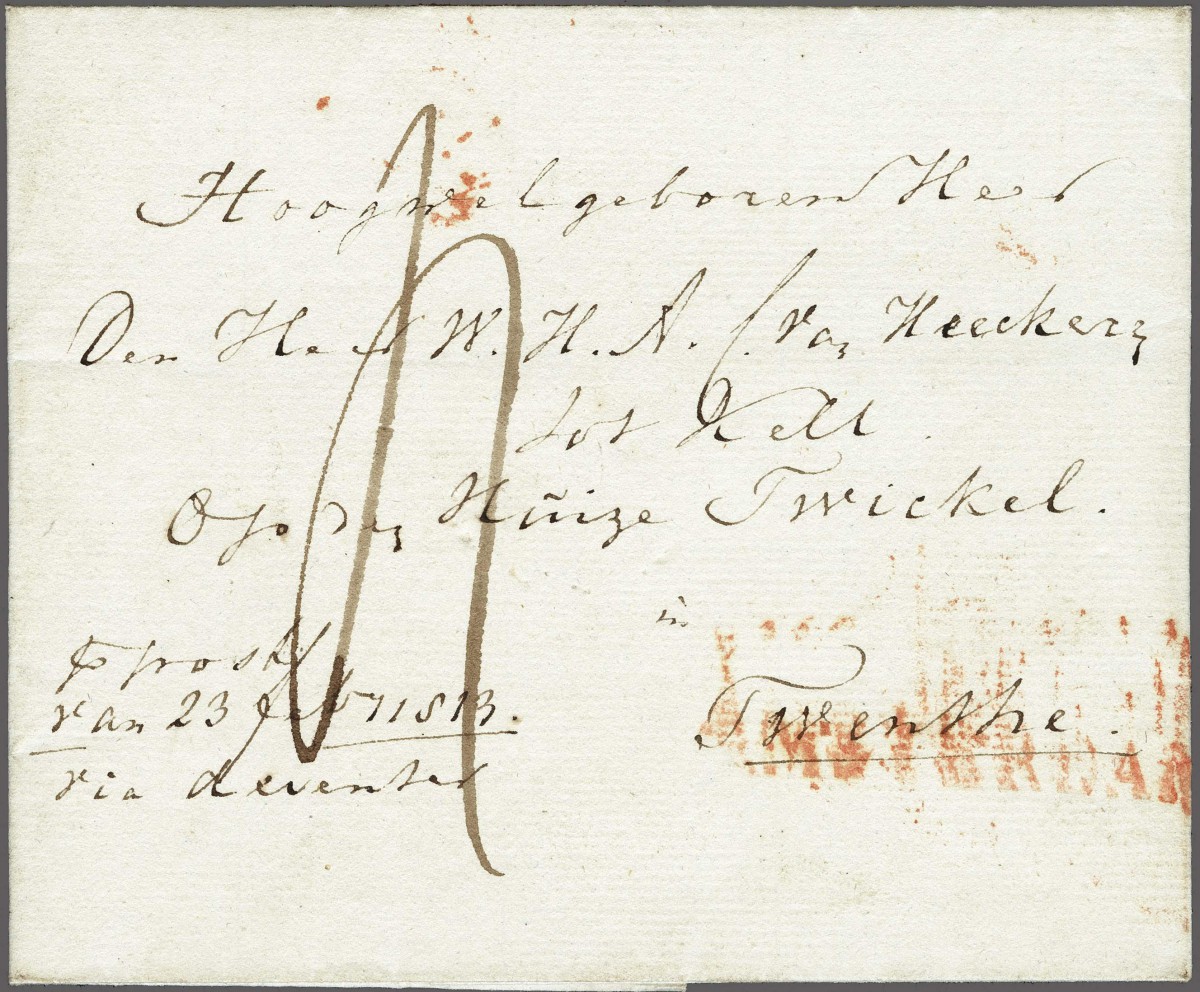 Hoogwelgeboren Heer
Den Heer W. H. A. C. van Heeckeren
tot Kell
Op den Huize Twickel.
in
Twenthe.
P post
van 23 feb 1813.
via deventer